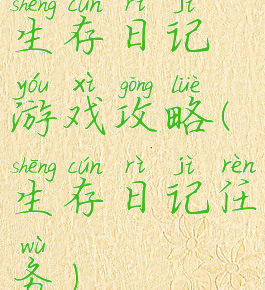 shēng cún rì jì
生存日记
yóu xì gōng lüè
游戏攻略(
shēng cún rì jì rèn
生存日记任
wù
务)